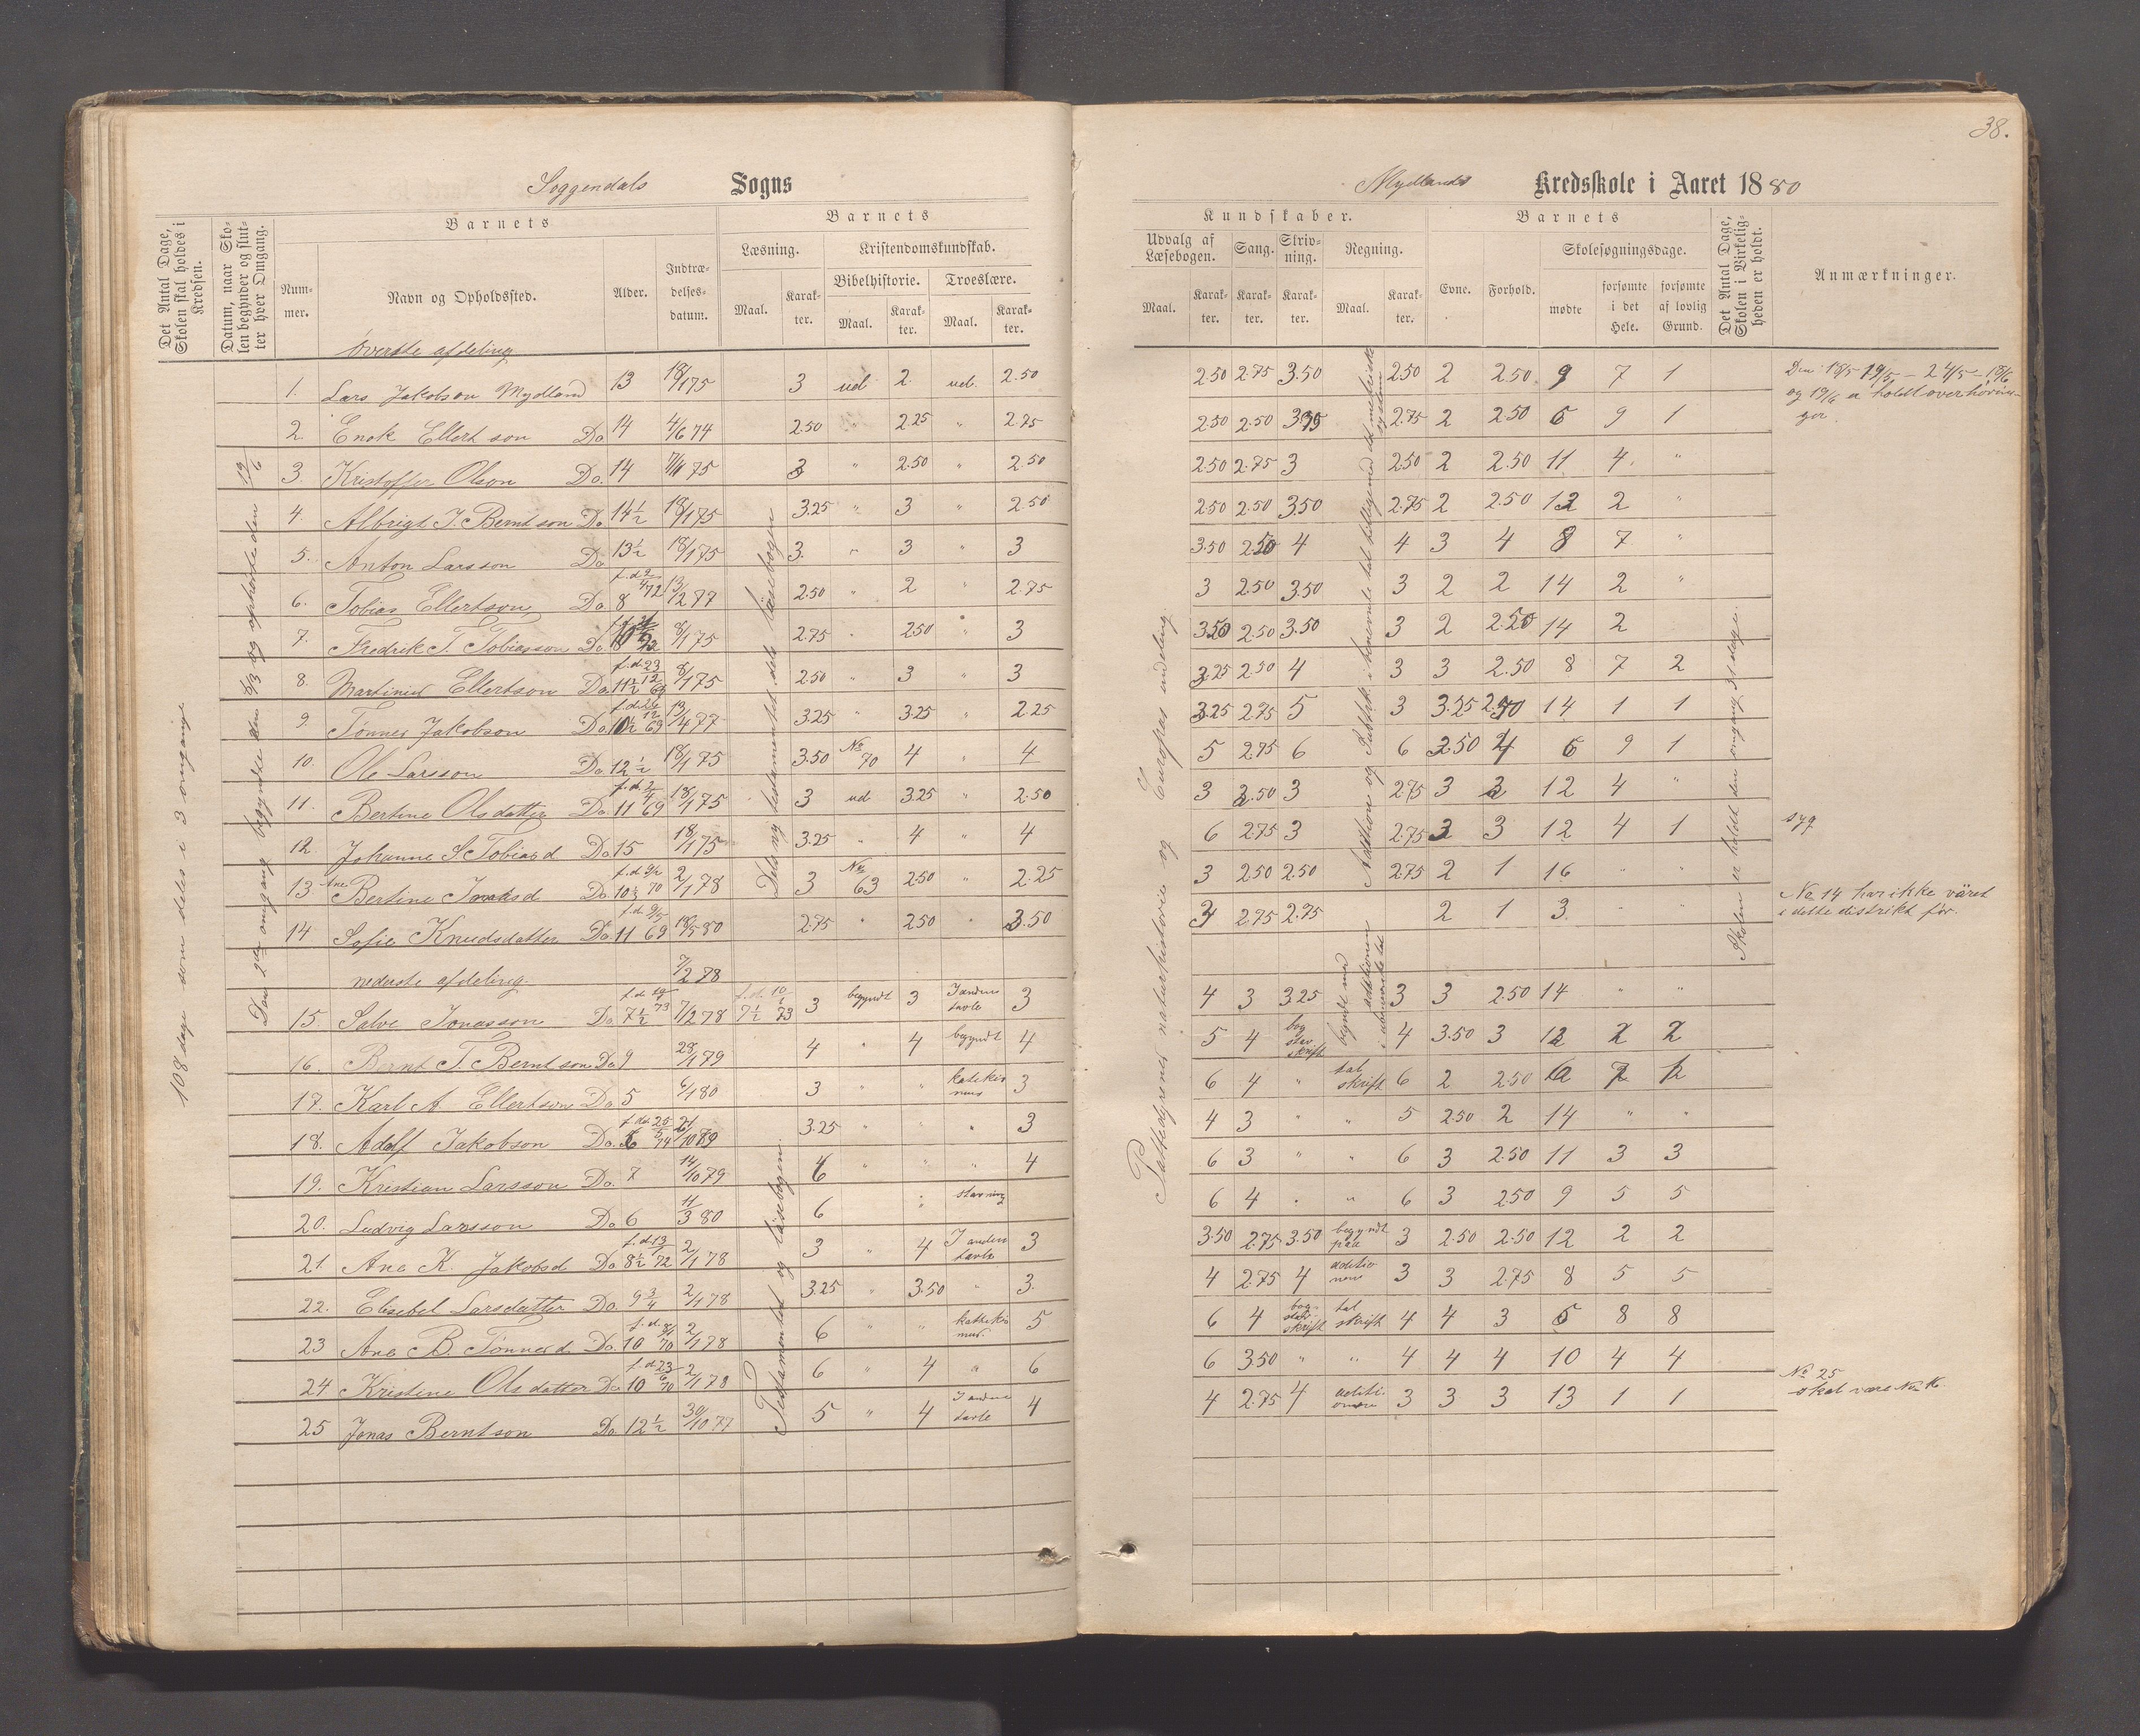 38.
Soggendals Sogns
Mydlands Kredsskole i Aaret 1880
Det Antal Dage, Skolen skal holdes i Kredsen.
Datum, naar Skolen begynder og slutter hver Omgang.
Barnets
Nummer.
Navn og Opholdssted.
Alder.
Indtrædelsesdatum.
Barnets
Læsning.
Maal.
Karakter.
Kristendomskundskab.
Bibelhistorie.
Maal.
Karakter.
Troeslære.
Maal.
Karakter.
Kundskaber.
Udvalg af Læsebogen.
Maal.
Karakter.
Sang.
Karakter.
Skrivning.
Karakter.
Regning.
Maal.
Karakter.
Barnets
Evne.
Forhold.
Skolesøgningsdage.
mødte
forsømte i det Hele.
forsømte af lovlig Grund.
Det Antal Dage, Skolen i Virkeligheden er holdt.
Anmærkninger.
108 dage som deles i 3 omgange
Den 2den omgang begyndte den 9/3 og ophørte den 19/6
Dels ny testamentet dels läsebogen
Testamentet og läsebogen
Pattedyrenes naturhistorie og Europas inddeling
Skolen er holdt den omgang
øverste afdeling
1. Lars Jakobson Mydland 13 18/1 75 3 ud 2. ud. 2.50 2.50 2.75 3.50 2.50 2 2.50 9 7 1
Den 18/5 19/5 - 24/5 - 18/6
og 19/6 er holdt overhøringer.
2. Enok Ellertson Do 14 4/6 74 2.50 " 2.25 " 2.75 2.50 2.50 3.75 2.75 2 2.50 6 9 1
3. Kristoffer Olson Do. 14 7/1 75 3 " 2.50 " 2.50 2.50 2.75 3 2.50 2 2.50 11 4. "
4. Albrigt J. Berntson Do 14½ 18/1 75 3.25 " 3 " 2.50 2.50 2.50 3.50 2.75 2 2.50 12 2 "
5. Anton Larsson Do 13½ 18/1 75 3. " 3 " 3 3.50 2.50 4 4 3 4 8 7 "
6. Tobias Ellertson Do 8 f.d. 2/4 72 13/2 77 2.50 " 2 " 2.75 3 2.50 3.50 3 2 2 14 2 "
7. Fredrik T. Tobiasson Do. 8/1 75 2.75 " 2.50 " 3 3.50 2.50 3.50 3 2 2.25 14 2
8. Martinius Ellertson Do. 11½ f.d. 23/12 68 8/1 75 2.50 " 3 " 3 3.25 2.50 4 3 3 2.50 8 7 2
9. Tønnes Jakobson Do. 10½ 69 13/4 77 3.25 " 3.25 " 2.25 3.25 2.75 5 3 3.25 2.50 14 1 1
10. Ole Larsson Do 12½ 18/1 75 3.50 No 70 4 " 4 5 2.75 6 6 2.50 4 6 9 1
11. Bertine Olsdatter Do. 11 f.d. 2/4 69 18/1 75 3 ud 3.25 " 2.50 3 2.50 3 2.75 3 3 12 4 "
12. Johanne S Tobiasd Do 15 18/1 75 3.25 " 4 " 4 6 2.75 3 2.75 3 3 12 4 1 syg
13. Ane Bertine Jonasd Do. 2/1 78 3 No 63 2.50 " 2.25 3 2.50 2.50 2.75 2 1 16 " "
14 Sofie Knudsdatter Do. 11 f.d. 9/5 69 18/5 80 2.75 " 2.50 " 3.50 3 2.75 2.75 2 1 3. " "
No 14 har ikke väret
i dette distrikt før.
nederste afdeling. 7/2 78
15. Salve Jonasson Do 7½ 7/2 78 f.d. 10/1 73 3 begyndt 3 I anden tavle 3 4 3 3.25 3 3 2.50 14 " "
16. Bernt T. Berntson Do 9 28/1 79 4 " 4 begyndt 4 5 4 bogstavskrift 4 3.50 3 12 2 2
17. Karl A. Ellertson Do. 5 6/1 80 3 " " katekismus 3 6 4 " talskrift 6 2 2.50
18. Adolf Jakobson Do. 6 3.25 " " " 3 4 3 " " 5 2.50 2 14 " "
19. Kristian Larsson Do. 7 14/10 79 6 " " " 4 6 3 " " 6 3 2.50 11 3 3
20. Ludvig Larsson Do 6 11/3 80 6 stavning 6 4 " " 6 3 2.50 9 5 5
21. Ane K. Jakobsd Do. 8½ f.d. 13/1 72 2/1 78 3 " 4 I anden tavle 3 3.50 2.75 3.50 begyndt paa 3 2.50 2.50 12 2 2
22. Elisebet Larsdatter Do. 9¾ 2/1 78 3.25 " 3.50 " 3. 4 2.75 4 aditionens 3 3 2.75 8 5 5
23 Ane B. Tønnesd. Do. 10 2/1 78 6 " " kathekismus. 5 6 4 bogstavskrift talskrift 4 4 3 6 8 8
24 Kristine Olsdatter Do 10 f.d. 23/6 70 2/1 78 6 " 4 " 6 6 3.50 " " 4 4 4 10 4 4
25 Jonas Berntson Do. 12½ 30/10 77 5 " 4 I anden tavle 4 4 2.75 4 3 3 3 13 1 1
No 25
skal være No